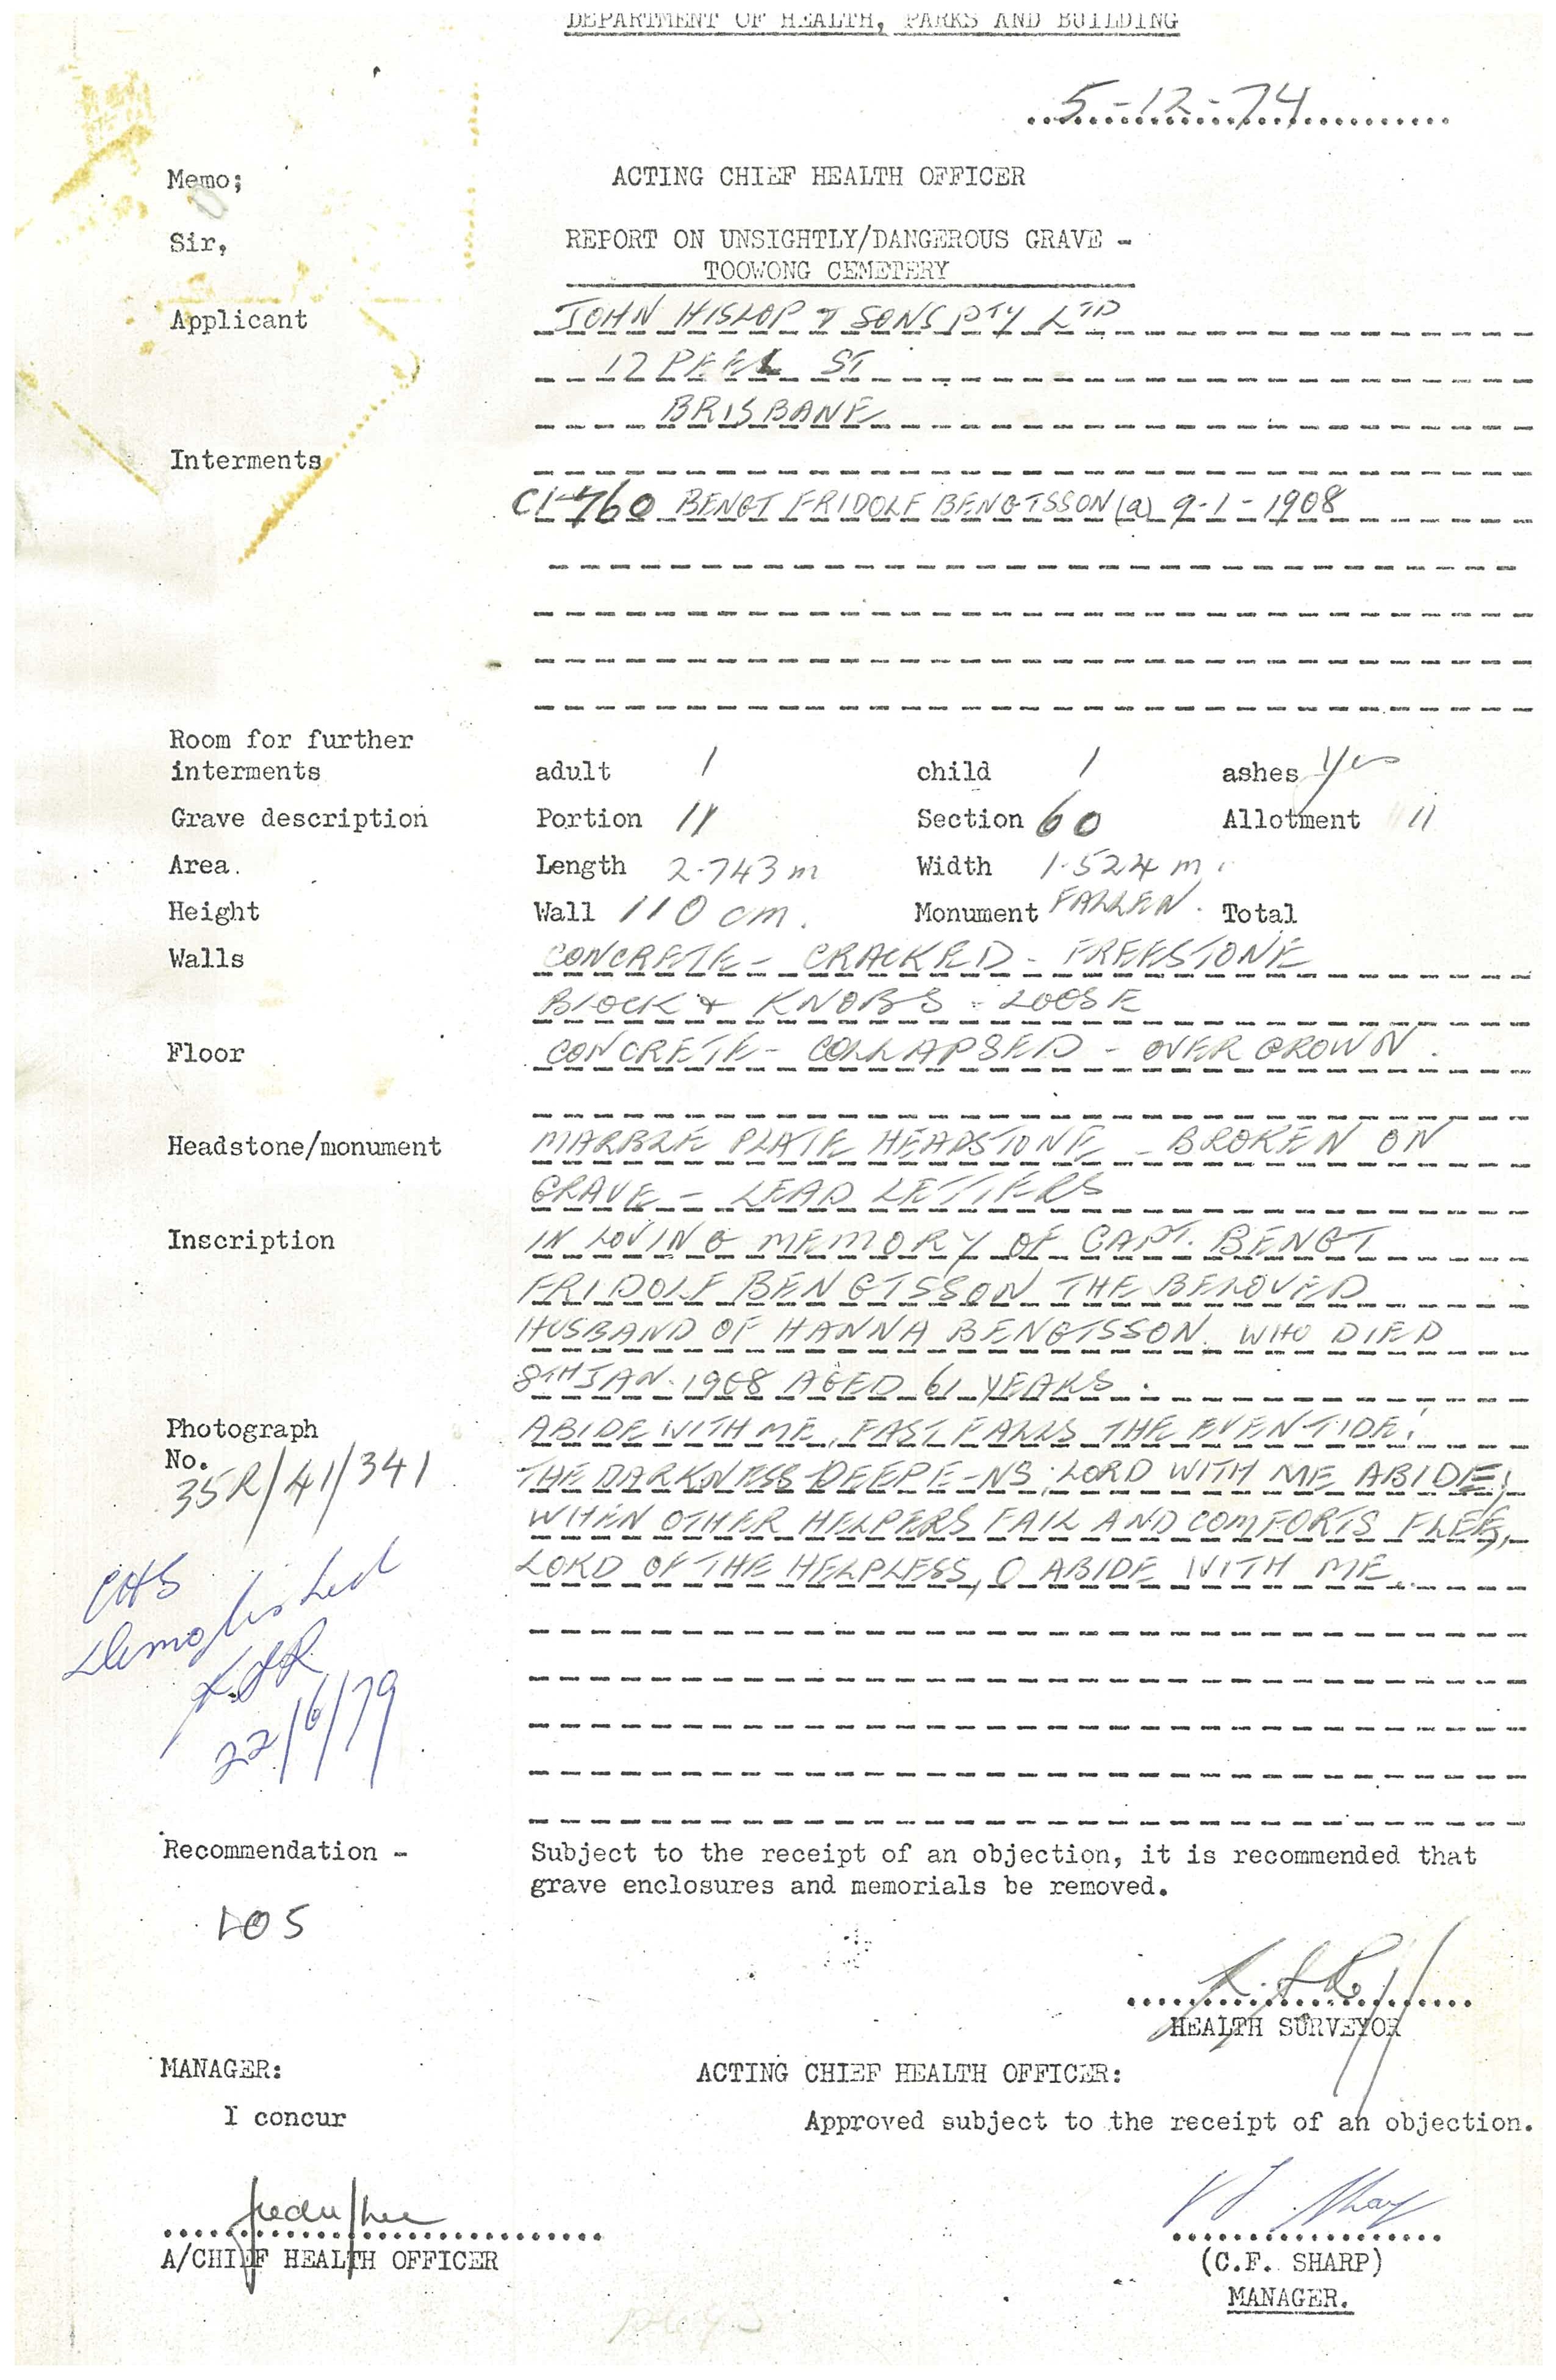 DEPARTMENT OF HEALTH, PARKS AND BUILDING
5-12-74
Memo; ACTING CHIEF HEALTH OFFICER
Sir, REPORT ON UNSIGHTLY/DANGEROUS GRAVE -
TOOWONG CEMETERY
Applicant JOHN HISLOP & SONS PTY LTD
17 PEEL ST
BRISBANE
Interments
760 BENGT FRIDOLF BENGTSSON (a) 9-1-1908
Room for further
interments adult 1 child 1 ashes Yes
Grave description Portion 11 Section 60 Allotment 11
Area. Length 2.743 m Width 1.524 m.
Height Wall 110 cm. Monument FALLEN. Total
Walls CONCRETE - CRACKED - FREESTONE
BLOCK & KNOBS - LOOSE
Floor CONCRETE - COLLAPSED - OVERGROWN.
Headstone/monument MARBLE PLATE HEADSTONE - BROKEN ON
GRAVE - LEAD LETTERS
Inscription IN LOVING MEMORY OF CAPT. BENGT
FRIDOLF BENGTSSON THE BELOVED
HUSBAND OF HANNA BENGTSSON. WHO DIED
8TH JAN. 1908 AGED 61 YEARS.
Photograph ABIDE WITH ME, FAST FALLS THE EVENTIDE!
No. THE DARKNESS DEEPE-NS; LORD WITH ME ABIDE;
35R/41/341 WHEN OTHER HELPERS FAIL AND COMFORTS FLEE,
LORD OF THE HELPLESS, O ABIDE WITH ME.
Demolished
22/6/79
Recommendation - Subject to the receipt of an objection, it is recommended that
grave enclosures and memorials be removed.
105
HEALTH SURVEYOR
MANAGER: ACTING CHIEF HEALTH OFFICER:
I concur Approved subject to the receipt of an objection.
A/CHIEF HEALTH OFFICER (C.F. SHARP)
MANAGER.